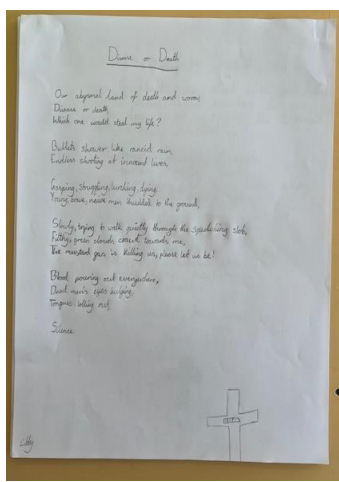 Disease or Death
Our abysmal land of death and sorrow,
Disease or death,
Which one would steal my life?
Bullets shower like rancid rain,
Endless shooting at innocent lives,
Gasping, struggling, lurching, dying
Young, brave, naive men thudded to the ground,
Slowly, trying to walk quietly through the sickening slosh,
Filthy, green clouds, creeping towards me,
The mustard gas is killing us, please let us be!
Blood pouring out everywhere,
Dead men's eyes bulging,
Tongues lolling out,
Silence